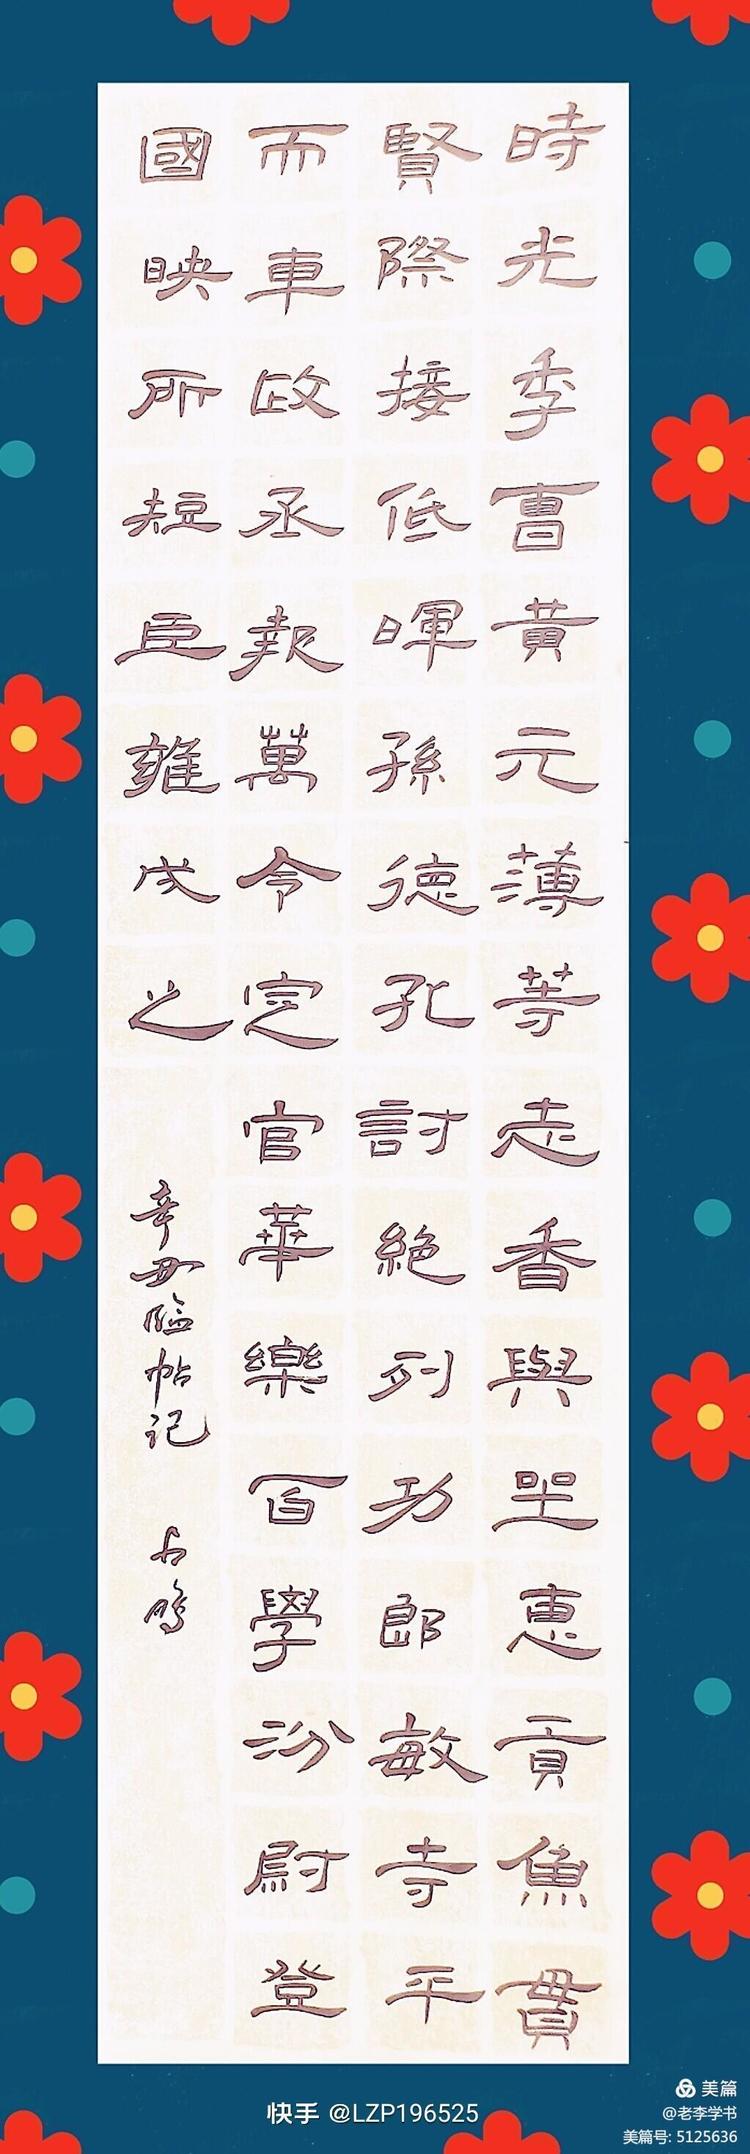 時光季曹黃元薄等志香與坐惠貢魚貫
賢際接低暉孫德孔討絕列功郎敏寺平
而車政丞報萬令定官華樂百學汾尉登
國映所短臣雍成之
辛丑临帖记
快手 @LZP196525
美篇
@老李学书
美篇号: 5125636